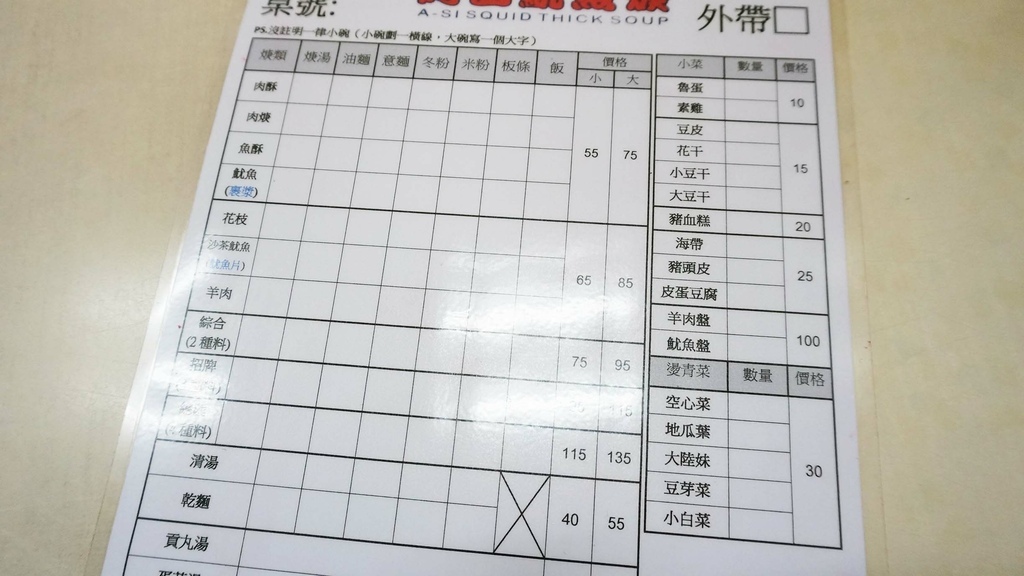 桌號:
A-SI SQUID THICK SOUP
外帶□
PS.沒註明一律小碗(小碗劃一橫線,大碗寫一個大字)
焿類 焿湯 油麵 意麵 冬粉 米粉 板條 飯 價格
小 大
肉酥
肉焿
魚酥
魷魚
(裹漿)
55 75
花枝
沙茶魷魚
(魷魚片)
羊肉
65 85
綜合
(2種料)
75 95
招牌
115
種料)
115 135
清湯
乾麵
40 55
貢丸湯
小菜 數量 價格
魯蛋
素雞
10
豆皮
花干
小豆干
大豆干
15
豬血糕 20
海帶
豬頭皮
皮蛋豆腐
25
羊肉盤
魷魚盤
100
燙青菜 數量 價格
空心菜
地瓜葉
大陸妹
豆芽菜
小白菜
30